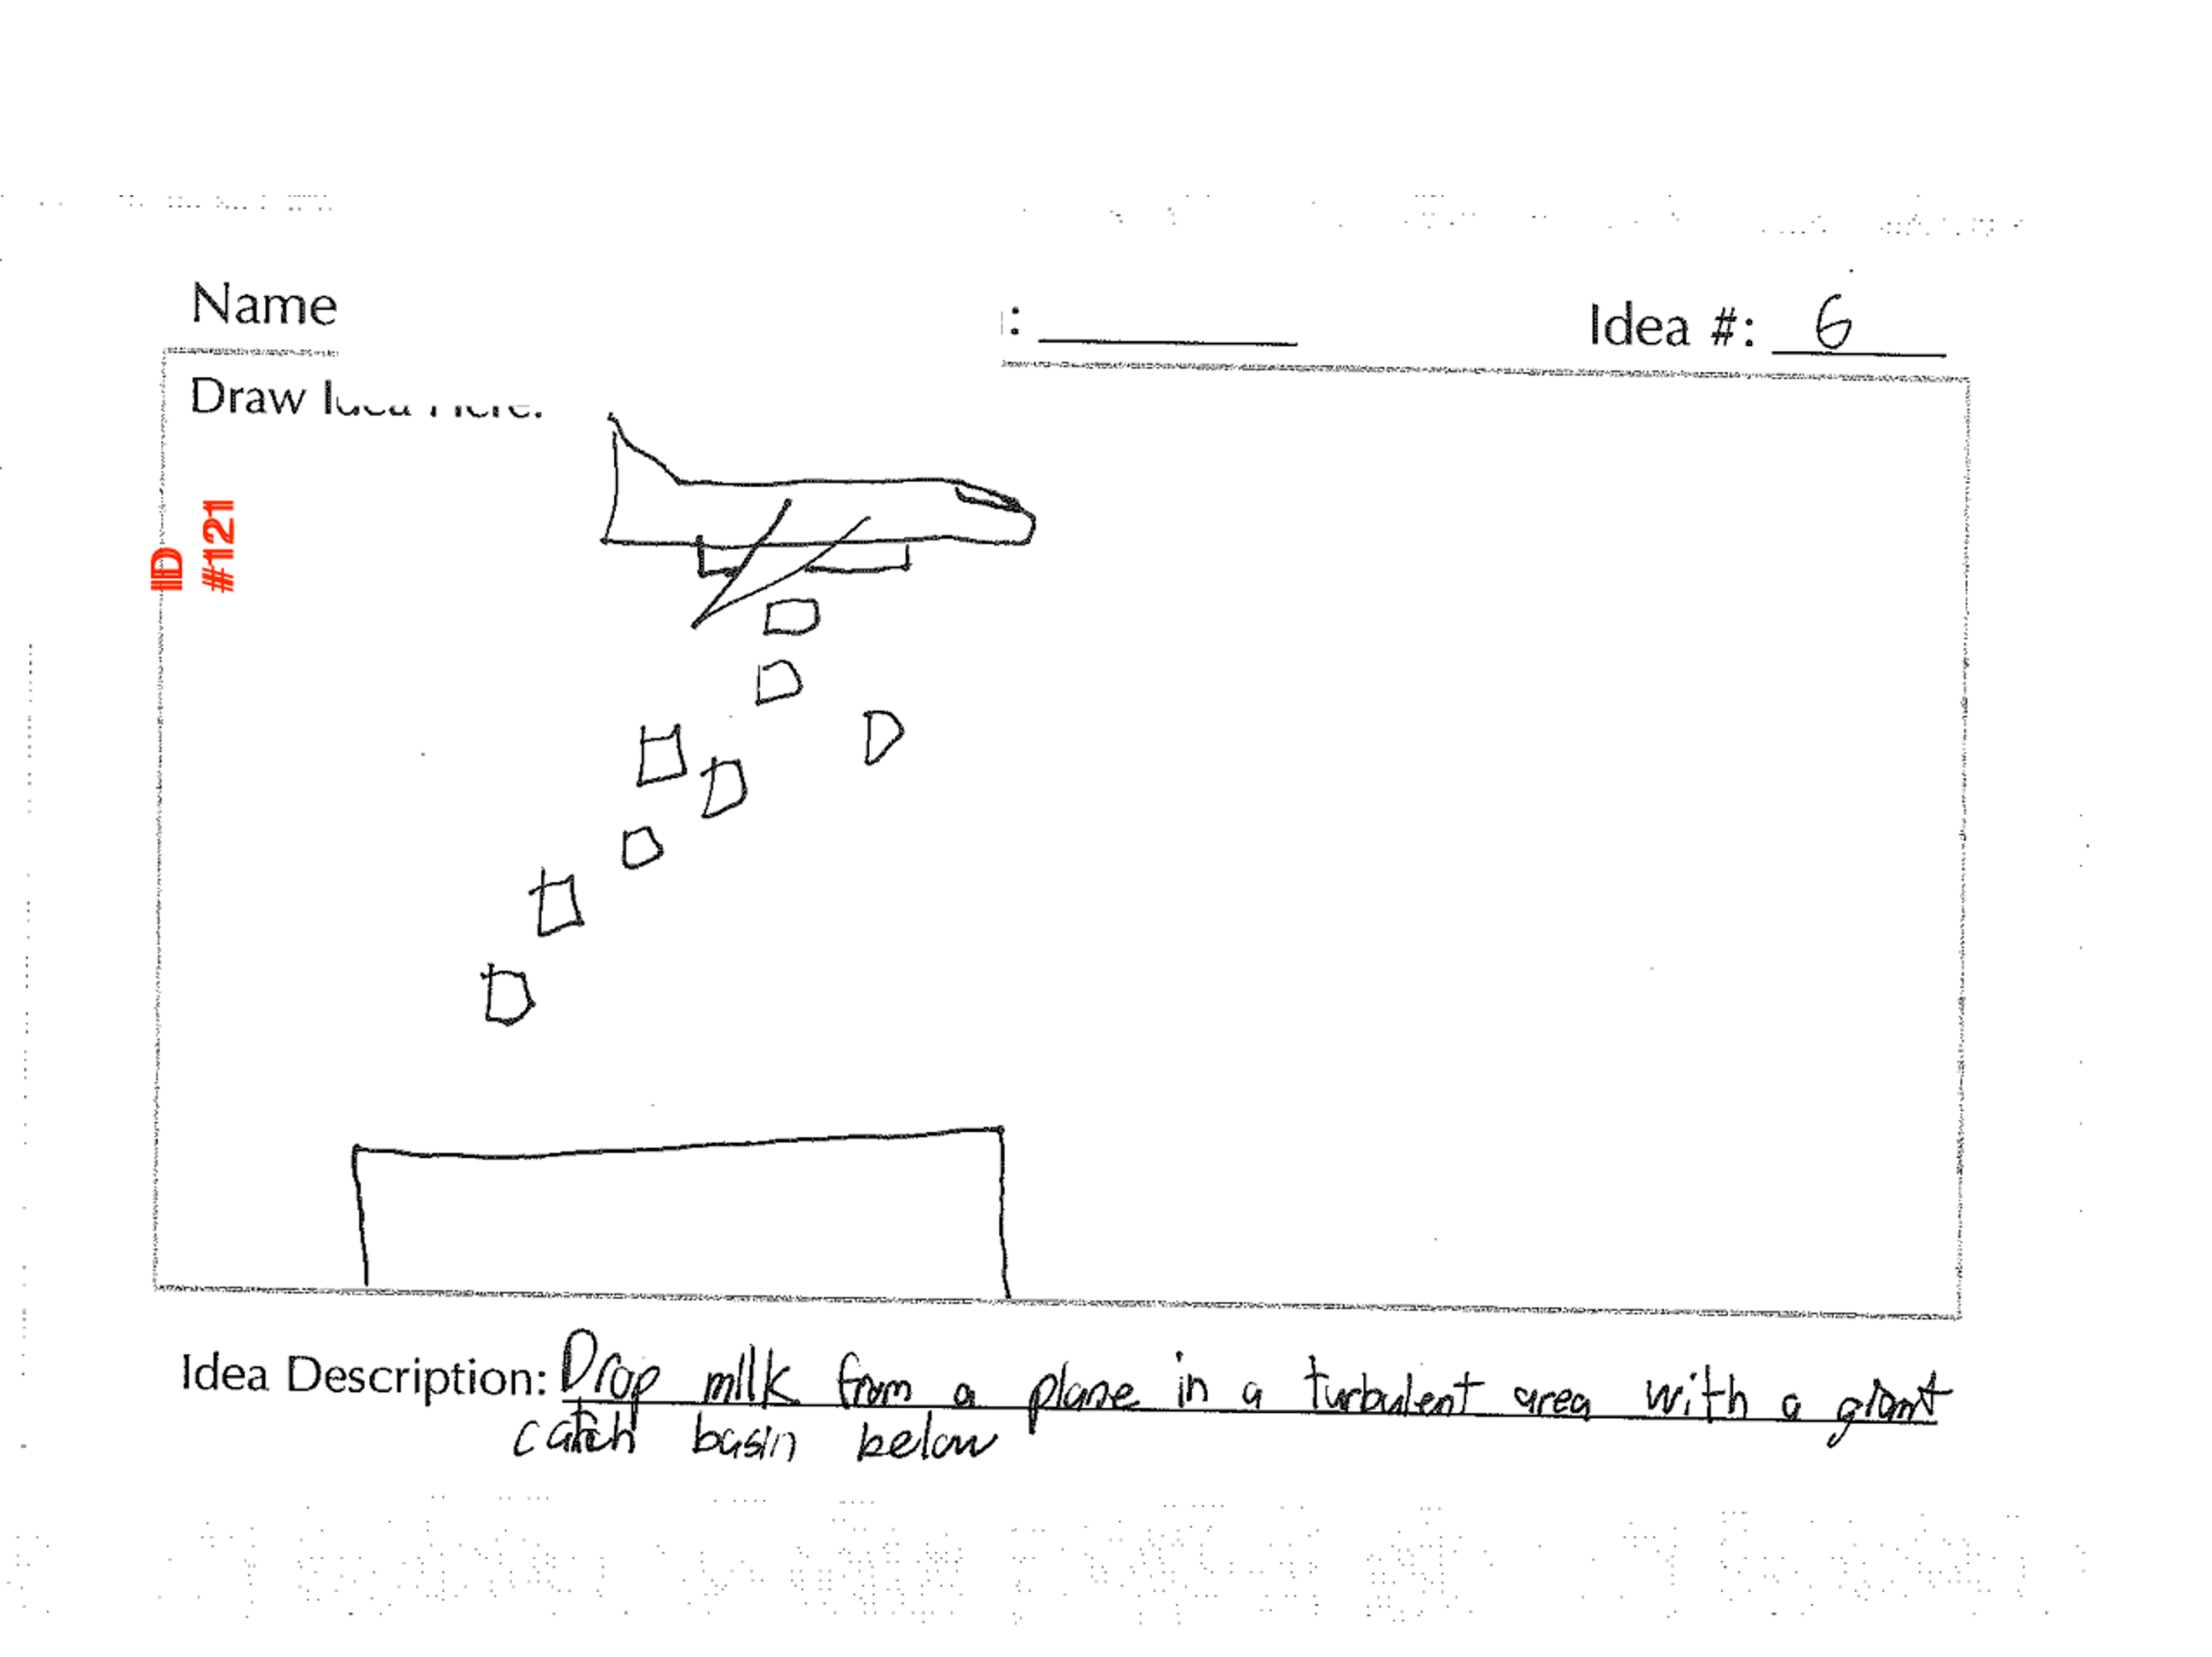 Name
: Idea #: 6
Draw Idea Here:
ID
#121
Idea Description: Drop milk from a plane in a turbulent area with a giant
catch basin below